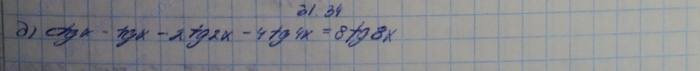 31.34
д) ctgx - tgx - 2tg2x - 4tg4x = 8tg8x